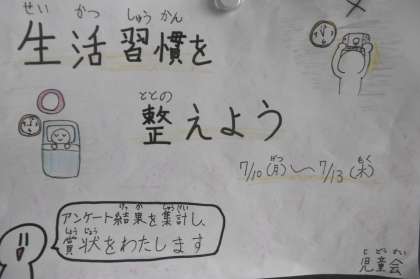 せい かつ しゅう かん
生活習慣を
ととの
整えよう
げつ もく
7/10(月)〜7/13(木)
けっ か しゅうけい
アンケート結果を集計し、
しょうじょう
賞状をわたします
じどうかい
児童会